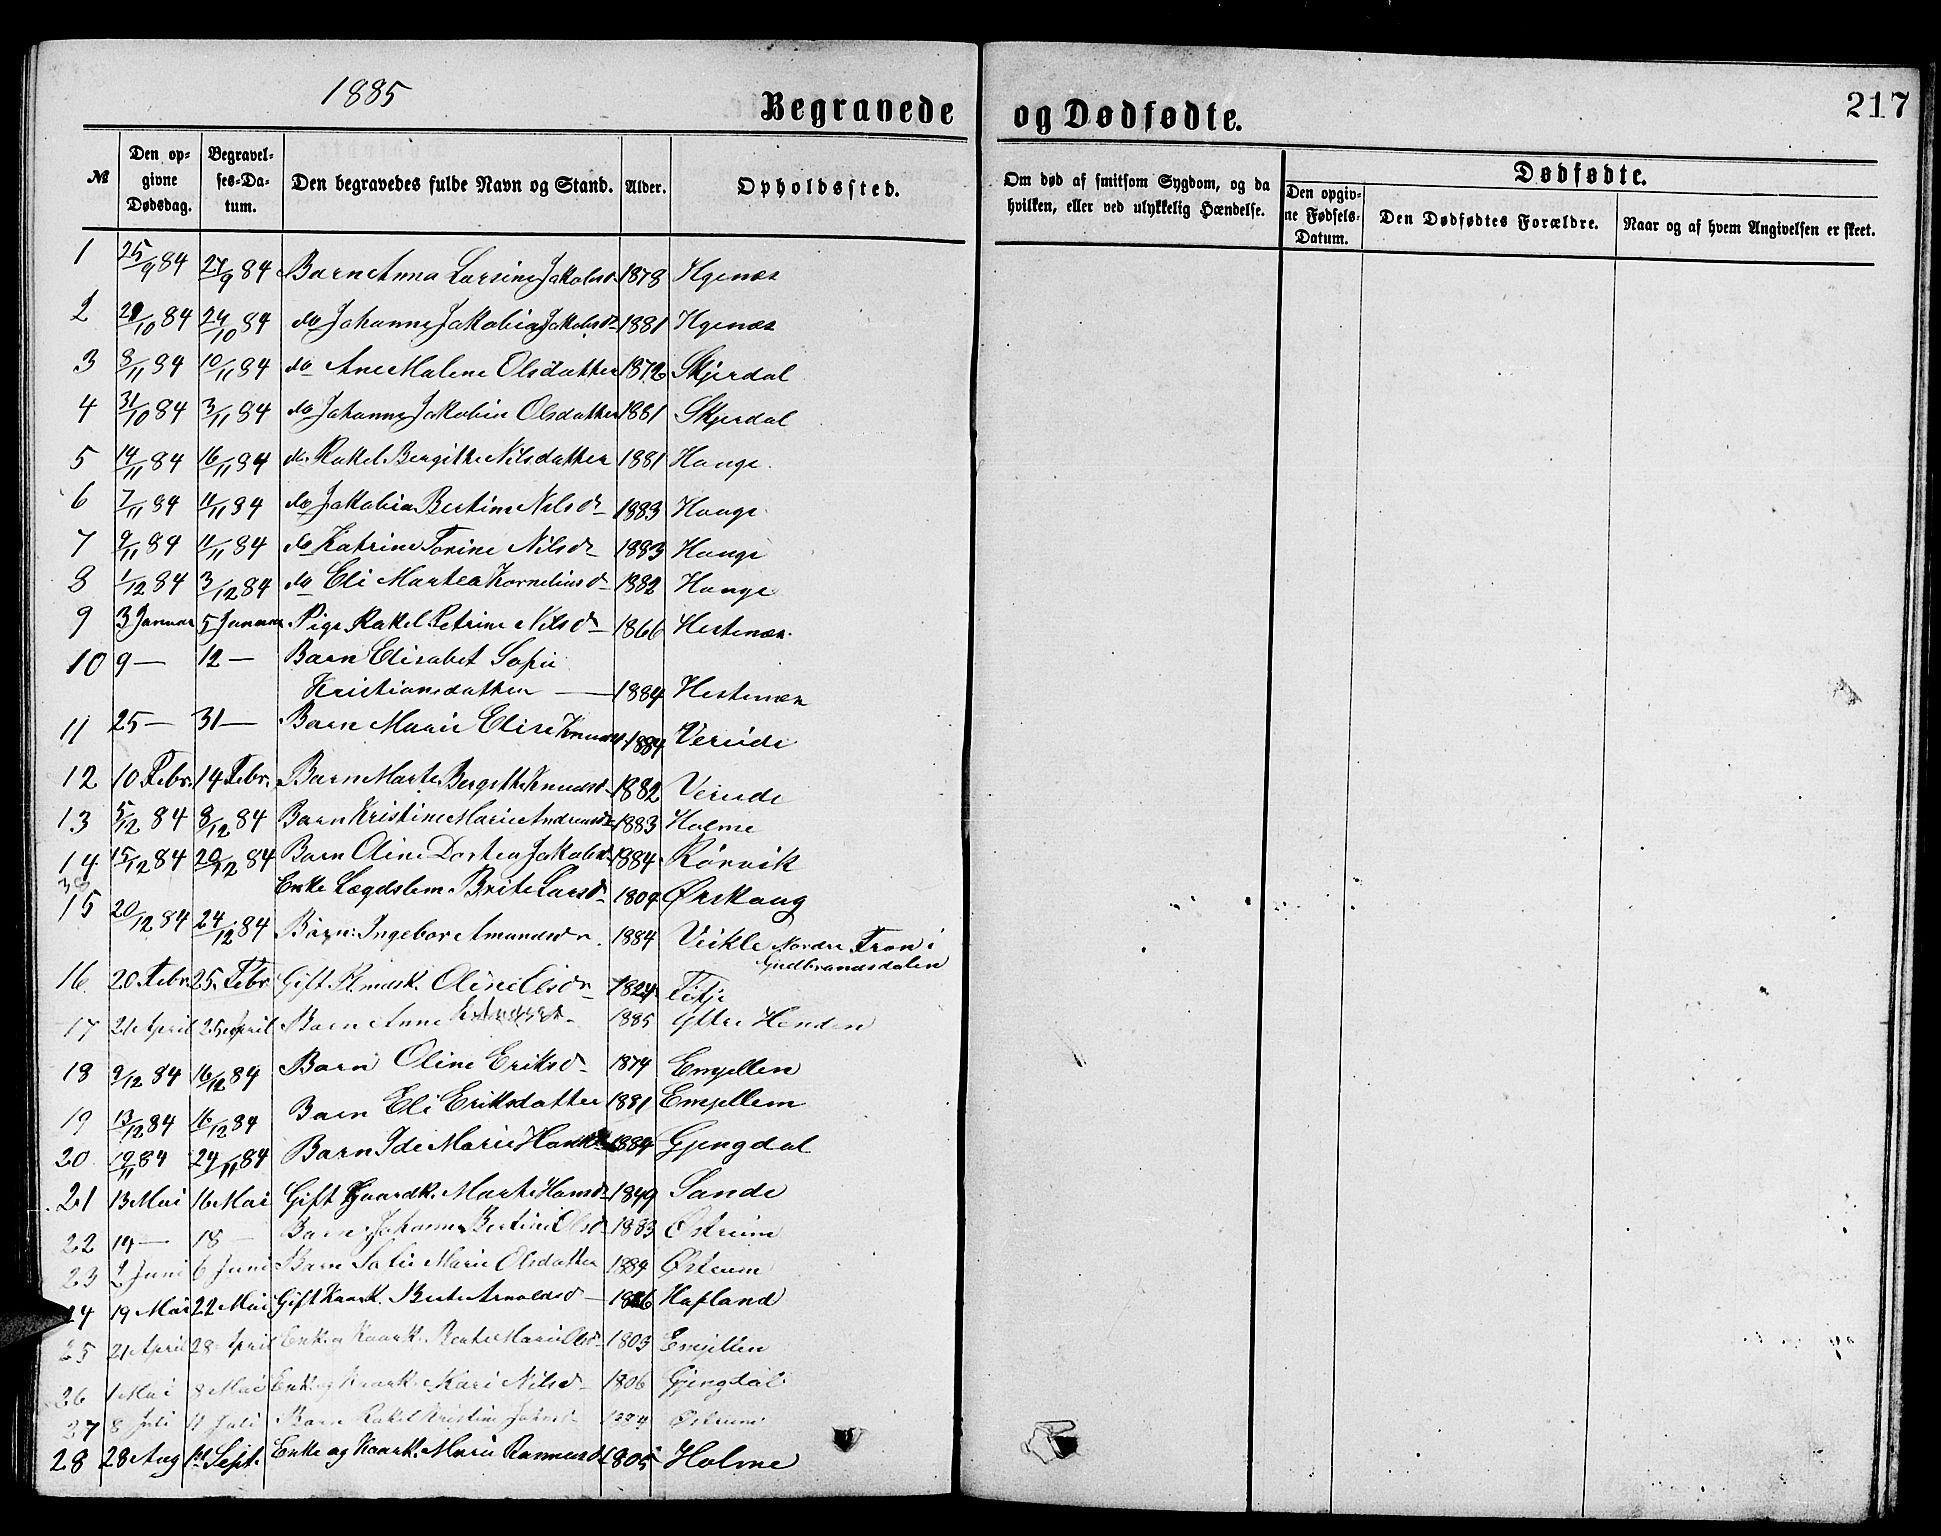 1885
Begravede og Dødfødte.
217
№ Den op- givne Dødsdag. Begravel- ses-Da- tum. Den begravedes fulde Navn og Stand. Alder. Opholdssted. Om død af smitsom Sygdom, og da hvilken, eller ved ulykkelig Hændelse. Dødfødte. Den opgiv- ne Fødsels- Datum. Den Dødfødtes Forældre. Naar og af hvem Angivelsen er skeet.
1 25/9 84 27/9 84 Barn Anna Larsine Jakobsd 1878 Hgenæs
2 24/10 84 do Johanne Jakobia Jakobsd 1881 Hgenæs
3 8/11 84 10/11 84 do Ane Malene Olsdatter 1872 Skjerdal
4 31/10 84 3/11 84 do Johanne Jakobin Olsdatter 1881 Skjerdal
5 14/11 84 16/11 84 do Rakel Bergithe Nilsdatter 1881 Hauge
6 7/11 84 11/11 84 do Jakobia Bertine Nilsd 1883 Hauge
7 9/11 84 11/11 84 do Katrine Torine Nilsd 1883 Hauge
8 1/12 84 3/12 84 do Eli Martea Korneliusd 1882 Hauge
9 3 Januar 5 Januar Pige Rakel Petrine Nilsd 1866 Hestenæs
10 9 — 12 — Barn Elisabet Sofie
Kristiansdatter — 1884 Hestenæs
11 25 — 31 — Barn Marie Elise 1884 Vereide
12 10 Febr. 14 Febr. Barn Marte Bergithe Knudsd 1882 Vereide
13 5/12 84 8/12 84 Barn Kristine Marie 1883 Holme
14 15/12 84 20/12 84 Barn Oline Dortea Jakobsd 1884 Rørvik
Enke Lægdslem Brite Larsd 1809 Ørskaug
15 20/12 84 24/12 84 Barn Ingebor Amundsd 1884 Veikle Nordre Fron i
Gudbrandsdalen
16 20 Febr 25 Febr Gift Oline Olsd 1824 Fitje
17 21 April 25 April Barn Anne 1885 Yttre Henden
18 9/12 84 16/12 84 Barn Oline Eriksd 1874 Emjellen
19 13/12 84 16/12 84 Barn Eli Eriksdatter 1881 Emjellem
20 19/11 84 24/11 84 Barn Ide Marie 1884 Gjengdal
21 13 Mai 16 Mai Gift Gaardk. Marte Hansd 1849 Sande
22 14 — 18 — Barn Johanne Bertine Olsd 1883 Østreim
23 2 Juni 6 Juni Barn Sofie Marie Olsdatter 1884 Østreim
24 19 Mai 22 Mai Gift Kaark. Berte Arnoldsd — Hafland
25 21 April 28 April Enke og Kaark. Berte Marie Olsd 1803 Emjellen
26 1 Mai 8 Mai Enke og Kaark. Kari Nilsd 1806 Gjengdal
27 8 Juli 11 Juli Barn Rakel Kristine 1884 Østreim
28 28 Aug 1st Sept. Enke og Kaark. Marie Rasmusd 1805 Holme